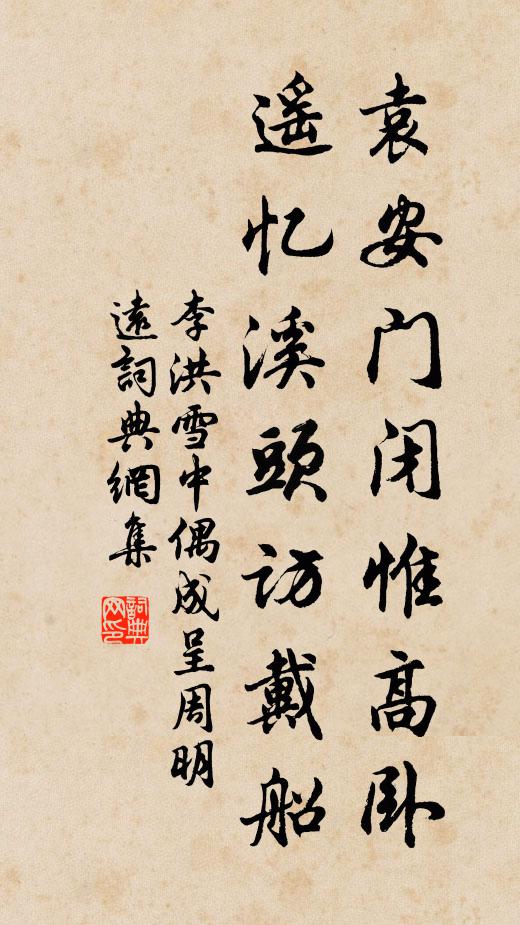 袁安门闭惟高卧
遥忆溪頭访戴船
李洪雪中偶成呈周明
遠詞典網集
詞典网印